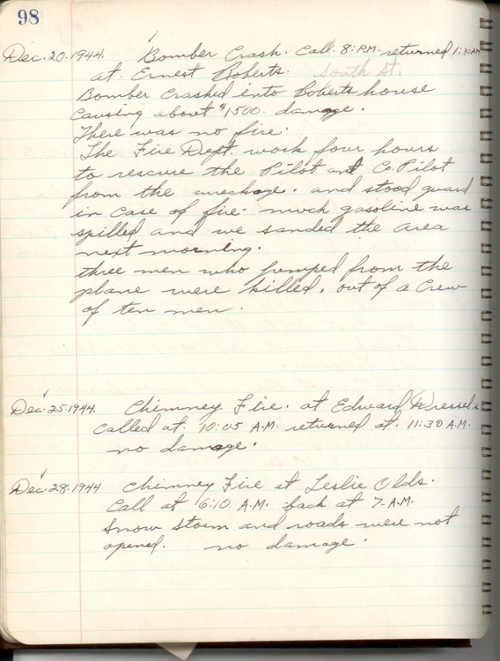 98
Dec. 20. 1944. Bomber Crash. Call. 8: P.M. returned 1:30 A.M.
at Ernest Roberts. South St.
Bomber Crashed into Roberts house
Causing about $1500. damage.
There was no fire.
The Fire Dept. work four hours
to rescure the Pilot and Co Pilot
from the wreckage. and stood guard
in case of fire. much gasoline was
spilled and we sanded the area
next morning.
three men who jumped from the
plane were killed. out of a Crew
of ten men.
Dec. 25. 1944. Chimney Fire. at Edward Wessels
Called at. 10:05 A.M. returned at. 11:30 A.M.
no damage.
Dec. 28. 1944 Chimney Fire at Leslie Olds.
Call at 6:10 A.M. back at 7-A.M.
Snow storm and roads were not
opened. no damage.